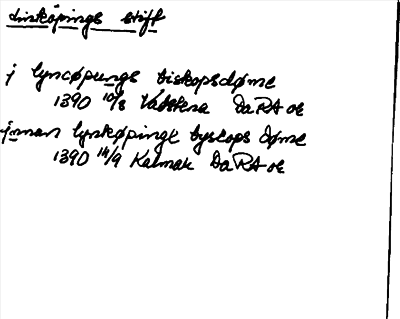 Linköpings stift
j lyncøpungs biskopsdøme
1390 10/8 Vadstena DaRA or
jnnan lynkøpingx byskops døme
1390 14/9 Kalmar DaRA or